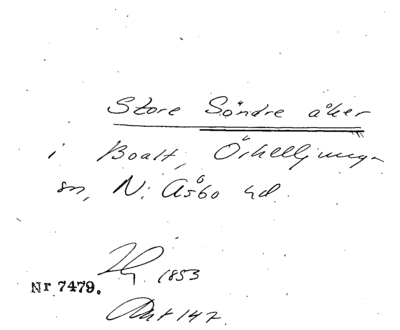 Store Söndre åker
i Boalt, Örkelljunga
sn, N. Åsbo hd.
1853
Nr 7479.
Akt 147.